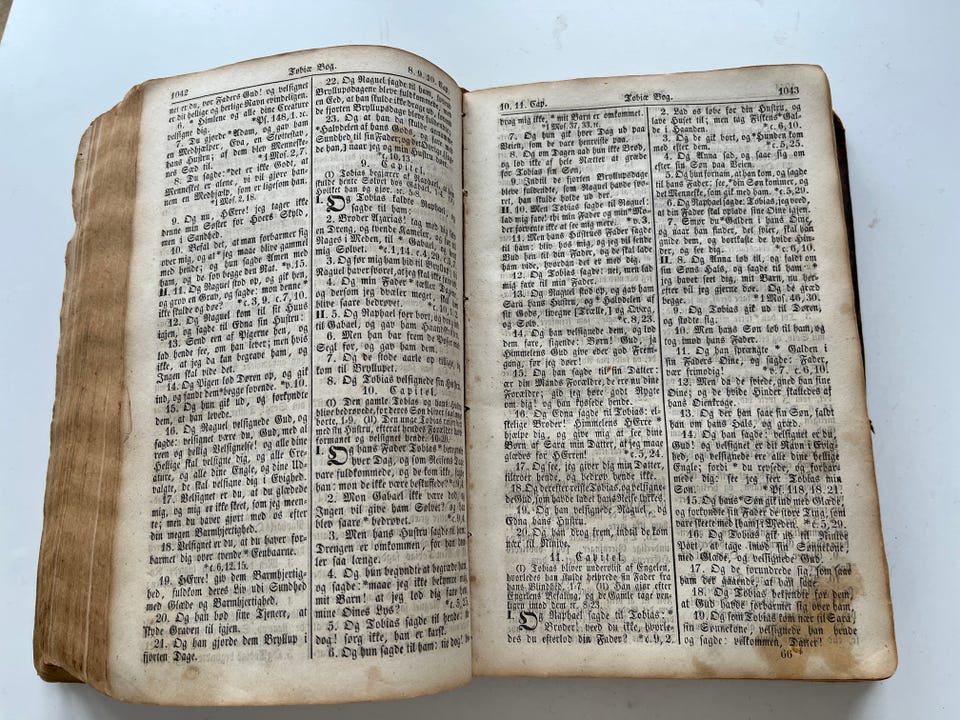 1042
Tobiæ Bog.
8. 9. 10. Cap.
net er du, vor Faders Gud! og velsignet
er dit hellige og herlige Navn evindeligen.
6. * Himlene og alle dine Creature
velsigne dig. *Ps. 148, 1. ꝛc.
7. Du gjorde *Adam, og gav ham
en Medhjælper, Eva, en Støttestav,
hans Hustru; af dem blev Menneske-
nes Sæd til. *1 Mos. 2, 7.
8. Du sagde: *det er ikke Godt, at
Mennesket er alene, vi vil gjøre ham-
nem en Medhjælp, som er ligesom han.
*1 Mos. 2, 18.
9. Og nu, HErre! jeg tager ikke
denne min Søster for Hoers Skyld,
men i Sandhed.
10. Befal det, at man forbarmer sig
over mig, og at jeg maa blive gammel
med hende; og hun sagde Amen med
ham, og de sov begge den Nat. *v. 15.
II. 11. Og Raguel stod op, og gik hen,
og grov en Grav, og sagde: mon denne*
ikke skulde og døe? *c. 3, 9. c. 7, 10.
12. Og Raguel kom til sit Huus
igjen, og sagde til Edna sin Hustru:
13. Send een af Pigerne hen, og
lad hende see, om han lever; men hvis
ikke, at jeg da kan begrave ham, og
Ingen skal vide det.
14. Og Pigen lod Døren op, og gik
ind, og fandt dem*begge sovende. *v. 10.
15. Og hun gik ud, og forkyndte
dem, at han levede.
16. Og Raguel velsignede Gud, og
sagde: velsignet være du, Gud, med al
reen og hellig Velsignelse! og alle dine
Hellige skal velsigne dig, og alle Cre-
ature, og alle dine Engle, og dine Ud-
valgte, de skal velsigne dig i Evighed.
17. Velsignet er du, at du glædede
mig, og mig er ikke skeet, som jeg meen-
te; men du haver gjort mod os efter
din megen Barmhjertighed.
18. Velsignet er du, at du haver for-
barmet dig over tvende * Eenbaarne.
*c. 6, 12. 15.
19. HErre! giv dem Barmhjertig-
hed, fuldkom deres Liv udi Sundhed
med Glæde og Barmhjertighed.
20. Og han bød sine Tjenere, at
skyde Graven til igjen.
21. Og han gjorde dem Bryllup i
fjorten Dage.
22. Og Raguel sagde til ham, førend
Bryllupsdagene bleve fuldkommede, med
en Eed, at han skulde ikke drage ud, førend
de fjorten Bryllups Dage
23. Og at han da skulde
*Halvdelen af hans Gods, og fare
Sundhed til sin Fader; og det
be han,) naar jeg og min Hustru
*c. 10, 12.
9. Capitel.
(I) Tobias begjærer af Raphael, at han
skulde hente Sølvet hos Gabael,
Hvilket han og gjør. 5-8.
I. Og Tobias kaldte Raphael, og
sagde til ham:
2. Broder Azarias! tag med dig
Dreng, og tvende Kameler, og far til
Rages i Meden, til * Gabael, og hent
mig Sølvet. *c. 1, 14. c. 4, 20.
3. Og før mig ham hid til Brylluppet
Raguel haver svoret, at jeg skal ikke
4. Og min Fader *tæller Dagene
og dersom jeg dvæler meget, skal han
blive saare bedrøvet. *c. 10, 1. 2
II. 5. Og Raphael foer bort, og
til Gabael, og gav ham Haandskriftet
6. Men han bar frem de Poser med
Segl for, og gav ham dem.
7. Og de stode aarle op tillige, og
kom til Bryllup.
8. Og Tobias velsignede sin Hustru.
10. Capitel.
(I) Den gamle Tobias og hans
blive bedrøvede, for deres Søn bliver
borte, 1-9. (II) Den unge Tobias
med sin Hustru, efterat hendes Forældre
formanet og velsignet hende. 10-20.
I. Og hans Fader Tobias * beregnede
hver Dag, og som Reisens Dage
vare fuldkommede, og de kom ikke, sagde
han: mon de ikke være beskuffede? *c. 9, 4
2. Mon Gabael ikke være død, og
Ingen vil give ham Sølvet? og han
blev saare * bedrøvet. *c. 9, 4
3. Men hans Hustru sagde til ham:
Drengen er omkommen, for han
ler saa længe.
4. Og hun begyndte at begræde ham,
og sagde: *maae jeg ikke bekymre mig,
mit Barn! at jeg lod dig fare hen,
mine Øines Lys? *c. 5, 23
5. Og Tobias sagde til hende:
dog! sørg ikke, han er karsk.
6. Og hun sagde til ham: tie dog!
10. 11. Cap.
Tobiæ Bog.
1043
drog mig ikke, * mit Barn er omkommet.
*1 Mos. 37, 33. ꝛc.
7. Og hun gik hver Dag ud paa
Veien, som de vare henreiste paa.
8. Og om Dagen aad hun ikke Brød,
og lod ikke af hele Nætter at græde
for Tobias sin Søn,
9. Indtil de fjorten Bryllupsdage
bleve fuldendte, som Raguel havde svo-
ret, han skulde holde ud der.
II. 10. Men Tobias sagde til Raguel:
lad mig fare! thi min Fader og min*Mo-
der forvente ikke at see mig mere. *v. 3.
11. Men hans Hustrues Fader sagde
til ham: bliv hos mig, og jeg vil sende
Bud hen til din Fader, og de skal lade
ham vide, hvordan det er med dig.
12. Og Tobias sagde: nei, men lad
mig fare til min Fader.
13. Og Raguel stod op, og gav ham
Sara hans Hustru, og * Halvdelen af
sit Gods, livegne [Trælle,] og Qvæg,
og Sølv. *c. 8, 23.
14. Og han velsignede dem, og lod
dem fare, sigende: Børn! Gud, ja
Himmelens Gud give eder god Frem-
gang, før jeg døer!
15. Og han sagde til sin Datter:
ær din Mands Forældre, de ere nu dine
Forældre; gid jeg høre godt Rygte
om dig! og han kyssede hende.
16. Og Edna sagde til Tobias: el-
skelige Broder! Himmelens HErre *
hjælpe dig, og give mig at see dine
Børn af Sara min Datter, at jeg maa
glædes for HErren! *c. 5, 24.
17. Og see, jeg giver dig min Datter,
tiltroer hende, og bedrøv hende ikke.
18. Og derefter reiste Tobias, og velsigne-
de Gud, som havde ladet hans Reise lykkes.
19. Og han velsignede Raguel, og
Edna hans Hustru.
20. Og han drog frem, indtil de kom
nær til Ninive.
11. Capitel.
(I) Tobias underviist af Engelen,
hvorledes han skulde helbrede sin Fader fra
hans Blindhed. 1. ꝛc. (II) Han gjør efter
Engelens Befaling, og de Gamle tage ven-
ligen imod dem. 8-23.
I. Og Raphael sagde til Tobias: *
Broder! veed du ikke, hvorle-
des du efterlod din Fader? *c. 9, 2.
2. Lad os løbe for din Hustru, og
lave Huset til; men tag Fiskens* Gal-
de i Haanden. *c. 6, 10.
3. Og de gik bort, og *Hunden kom
med efter dem. *c. 5, 25.
4. Og Anna sad, og saae sig om
efter sin Søn paa Veien.
5. Og hun fornam, at han kom, og sagde
til hans Fader: see, *din Søn kommer, og
det Menneske, som gik med ham. *c. 5, 29.
6. Og Raphael sagde: Tobias, jeg veed,
at din Fader skal oplade sine Øine igjen.
7. Smør du*Galden i hans Øine,
og naar han finder, det svier, skal han
gnide dem, og bortkaste de hvide Hin-
der, og see dig. *c. 6, 10.
II. 8. Og Anna løb til, og faldt om
sin Søns Hals, og sagde til ham: *
jeg haver seet dig, mit Barn, nu her-
efter vil jeg gjerne døe. Og de græd
begge. *1 Mos. 46, 30.
9. Og Tobias gik ud til Døren,
og stødte sig.
10. Men hans Søn løb til ham, og
tog imod sin Fader.
11. Og han sprængte * Galden i
sin Faders Øine, og sagde: Fader,
vær frimodig! *v. 7. c. 6, 10.
12. Men da de sviede, gned han sine
Øine; og de hvide Hinder skalledes
af hans Øienkroge.
13. Og der han saae sin Søn, faldt
han om hans Hals, og græd.
14. Og han sagde: velsignet er du,
Gud, og velsignet er dit Navn i Evig-
hed, og velsignede ere alle dine hellige
Engle; fordi * du revsede, og forbar-
mede dig: see jeg seer Tobias min
Søn. *Ps. 118, 18. 21.
15. Og hans*Søn gik ind med Glæde,
og forkyndte sin Fader de store Ting, som
vare skeete med [ham] i Meden. *c. 5, 29.
16. Og Tobias gik ud til Ninive
Port, at tage imod sin Sønnekone,
med Glæde, og velsignede Gud.
17. Og de forundrede sig, som saae
ham der gaaende, at han saae.
18. Og Tobias bekjendte for dem,
at Gud havde forbarmet sig over ham,
19. Og som Tobias kom nær til Sara,
sin Sønnekone, velsignede han hende
og sagde: velkommen, Datter!
66